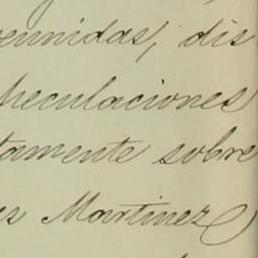 reunidas, dis
peculaciones
tamente sobre
es Martinez